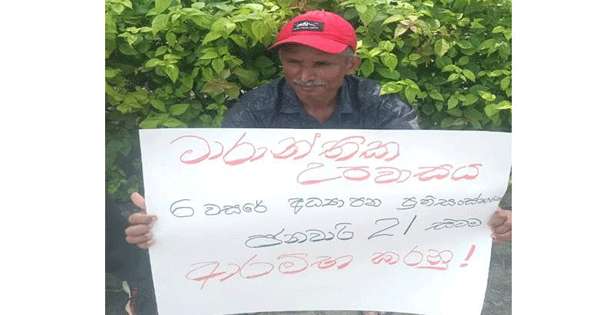 මාරාන්තික
උපවාසය
6 වසරේ අධ්‍යාපන ප්‍රතිසංස්කරණ
ජනවාරි 21 සිටම
ආරම්භ කරනු!